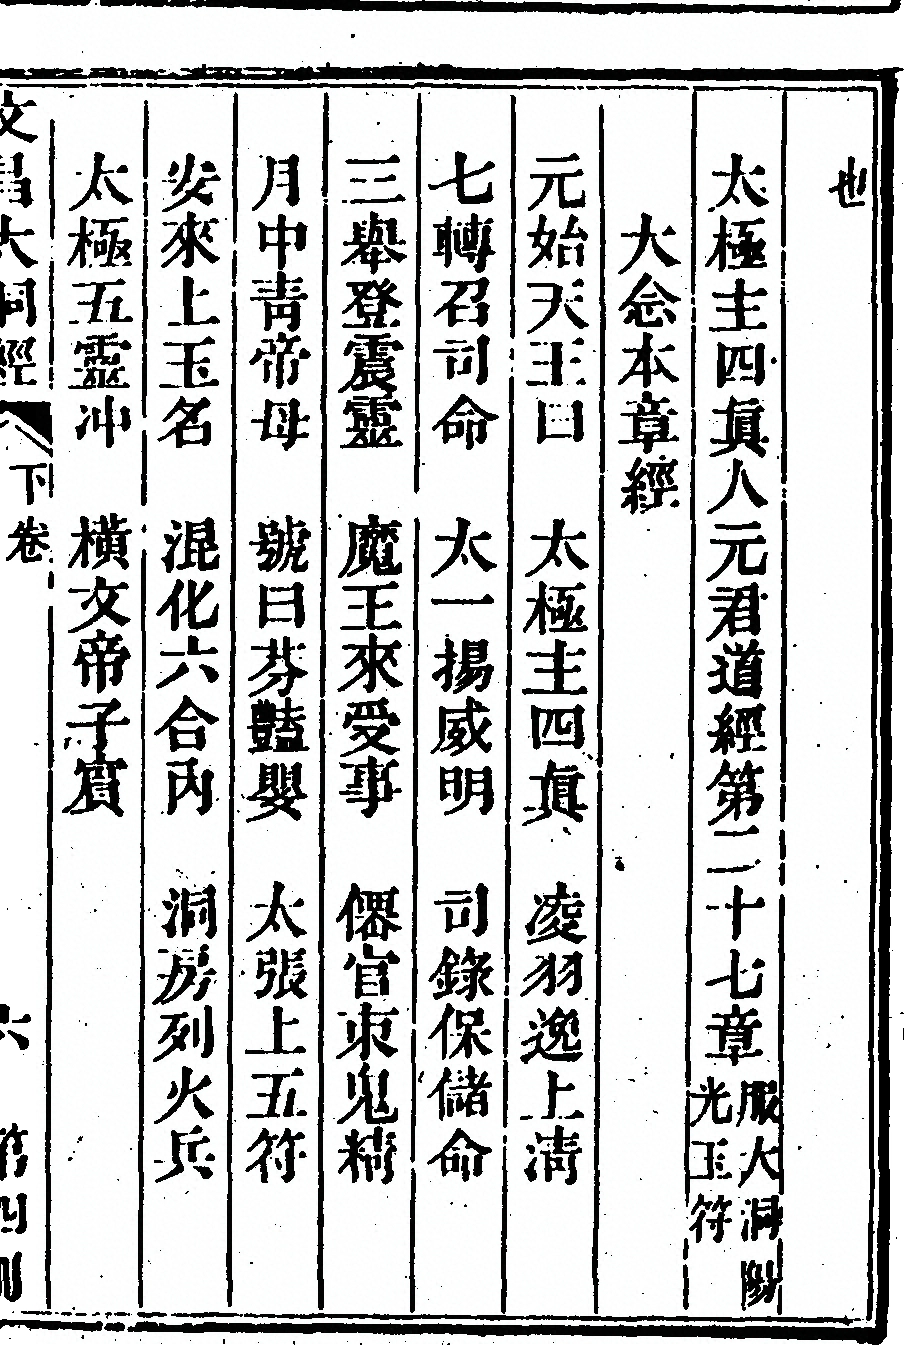 也
太極主四眞人元君道經第二十七章服大洞陽光玉符
大念本章經
元始天王曰　太極主四眞　凌羽逸上淸
七轉召司命　太一揚威明　司錄保儲命
三舉登震靈　魔王來受事　僊官束鬼精
月中靑帝母　號曰芬豔嬰　太張上五符
安來上玉名　混化六合內　洞房列火兵
太極五靈冲　横文帝子賓
文昌大洞經　下卷　六　第四